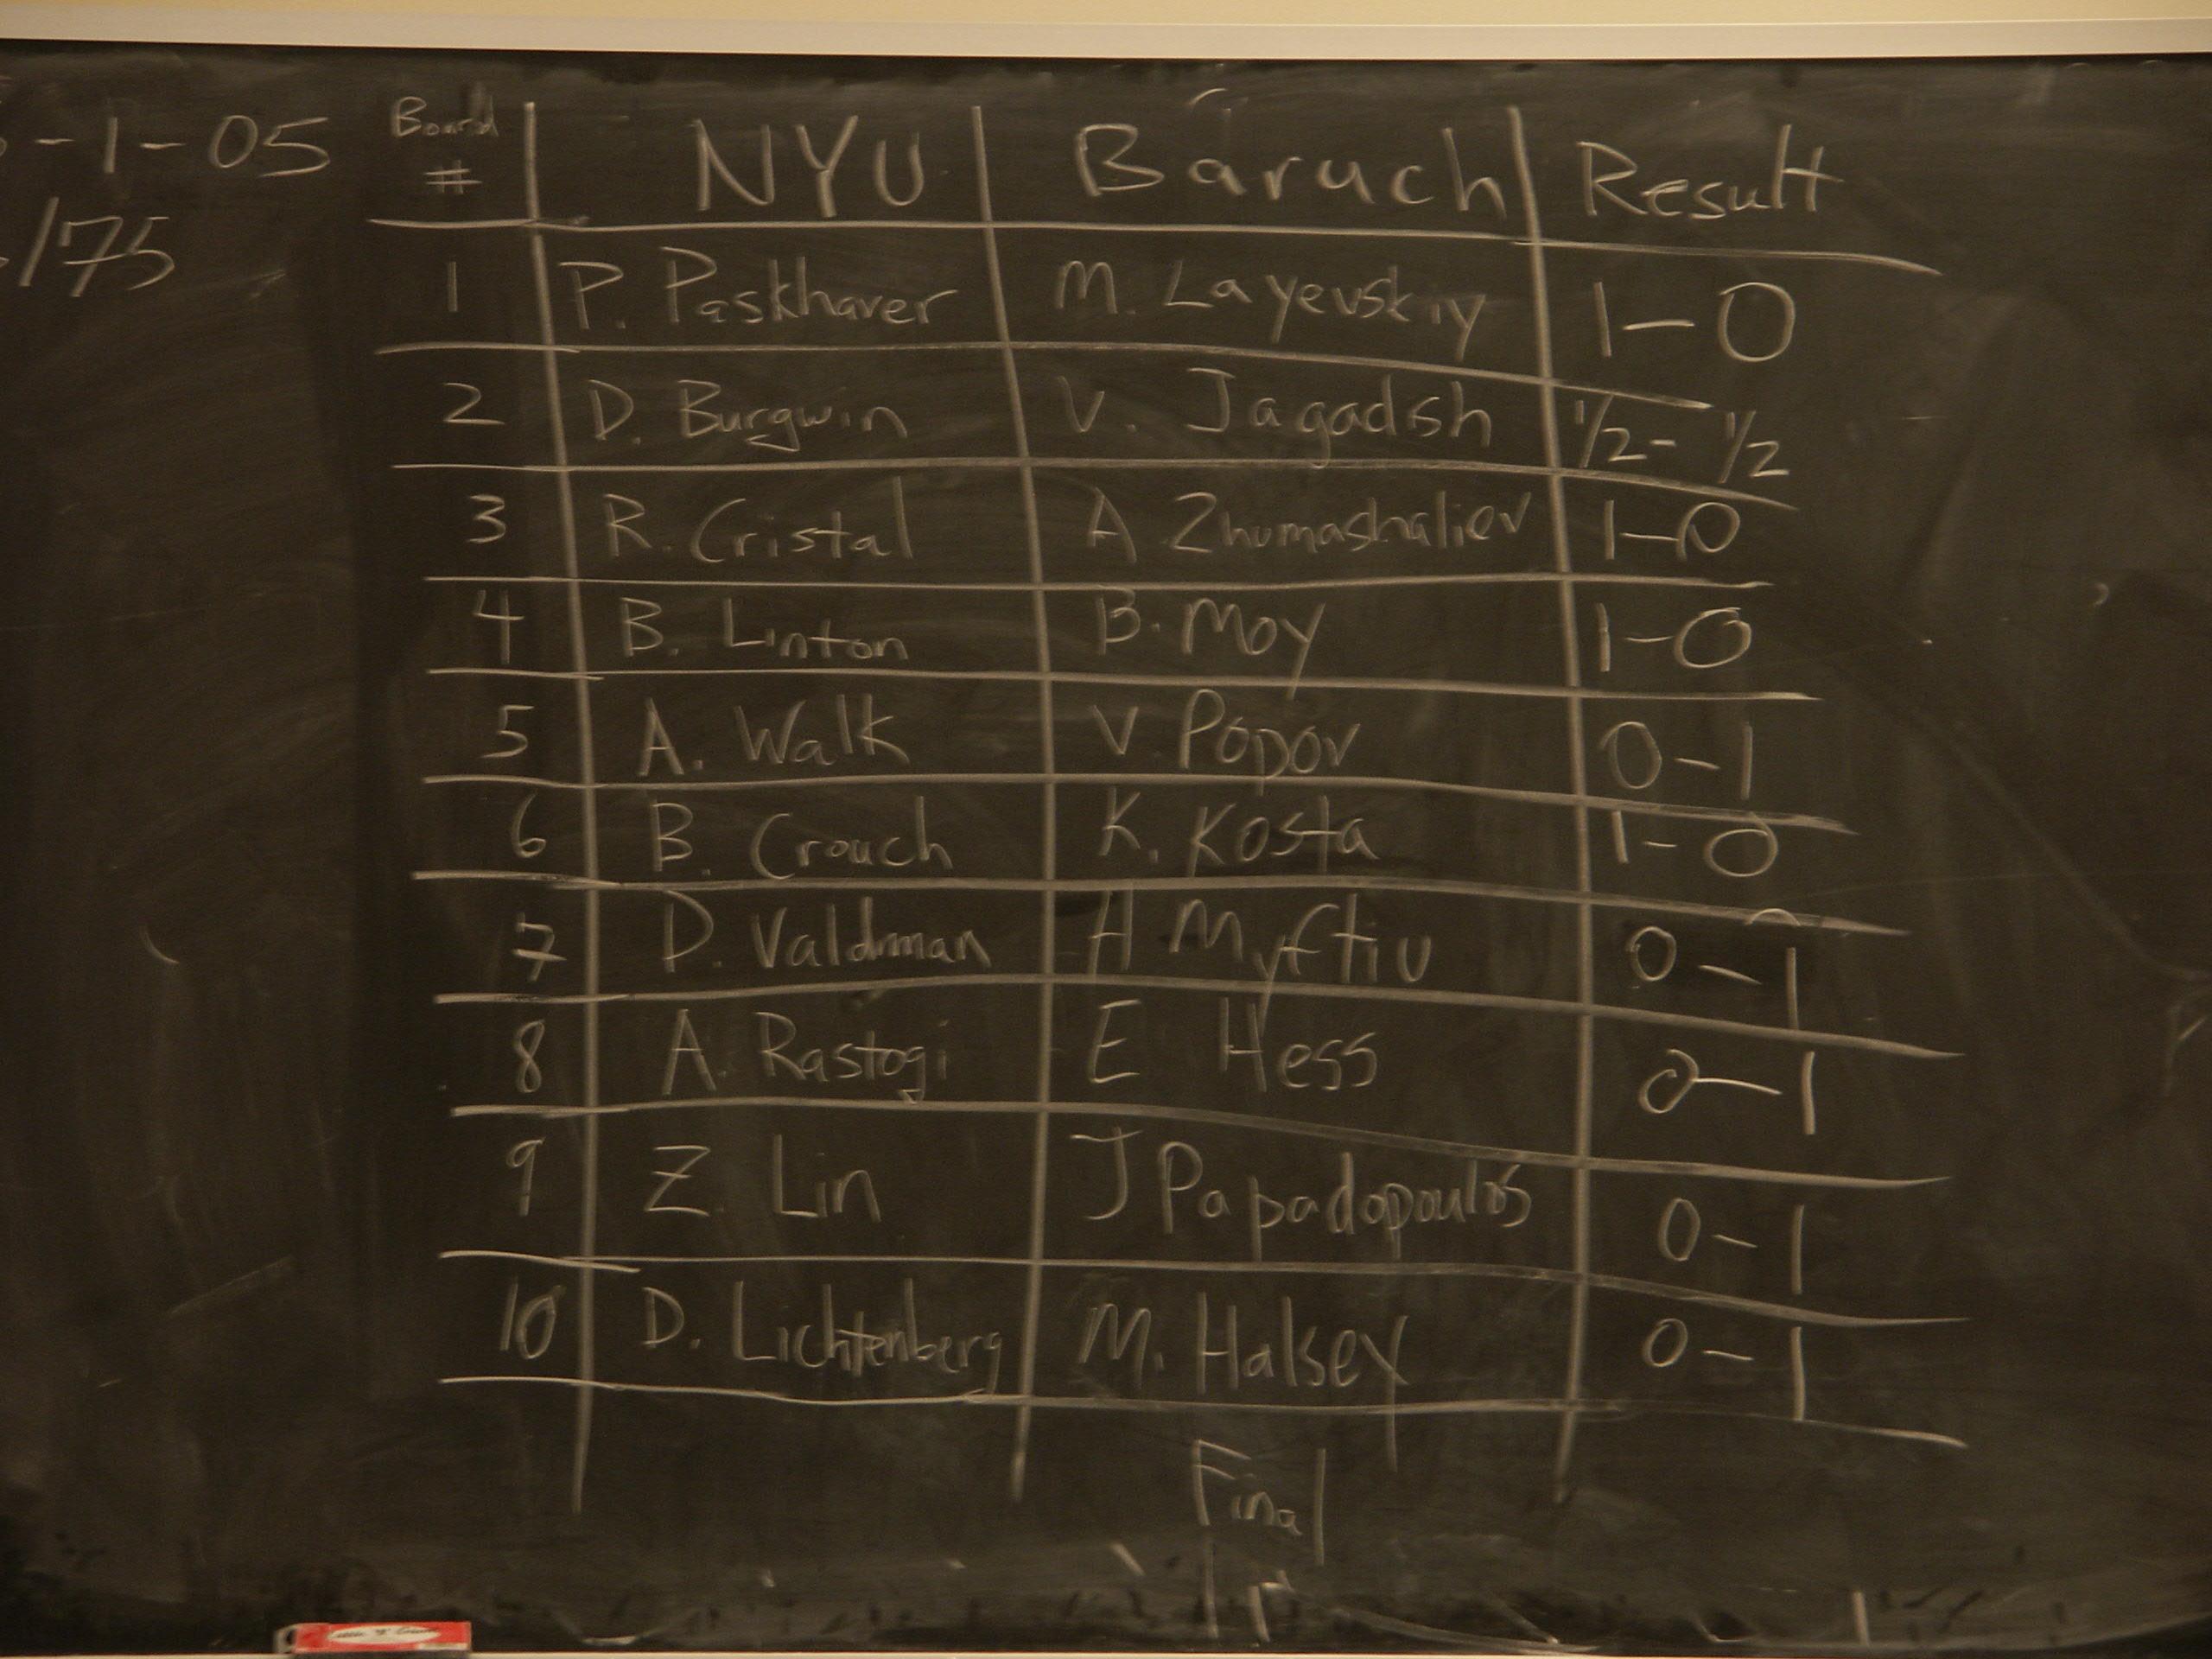 -1-05
/75
Board # NYU Baruch Result
1 P. Paskhaver M. Layevskiy 1-0
2 D. Burgwin V. Jagadish 1/2-1/2
3 R. Cristal A Zhumashaliev 1-0
4 B. Linton B. Moy 1-0
5 A. Walk V Popov 0-1
6 B. Crouch K. Kosta 1-0
7 D. Valdman A Myftiu 0-1
8 A. Rastogi E Hess 0-1
9 Z. Lin J Papadopoulos 0-1
10 D. Lichtenberg M. Halsey 0-1
Final